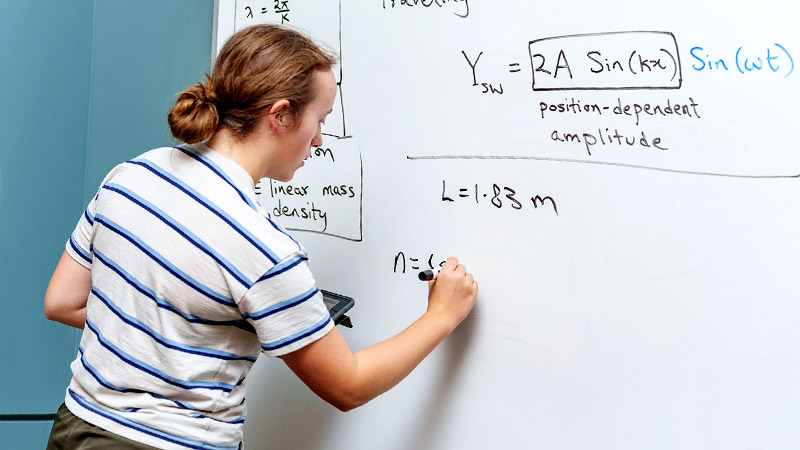 λ = 2π/k
Traveling
Y_sw = 2A Sin(kx) Sin(ωt)
position-dependent
amplitude
= linear mass
density
L = 1.83 m
n =